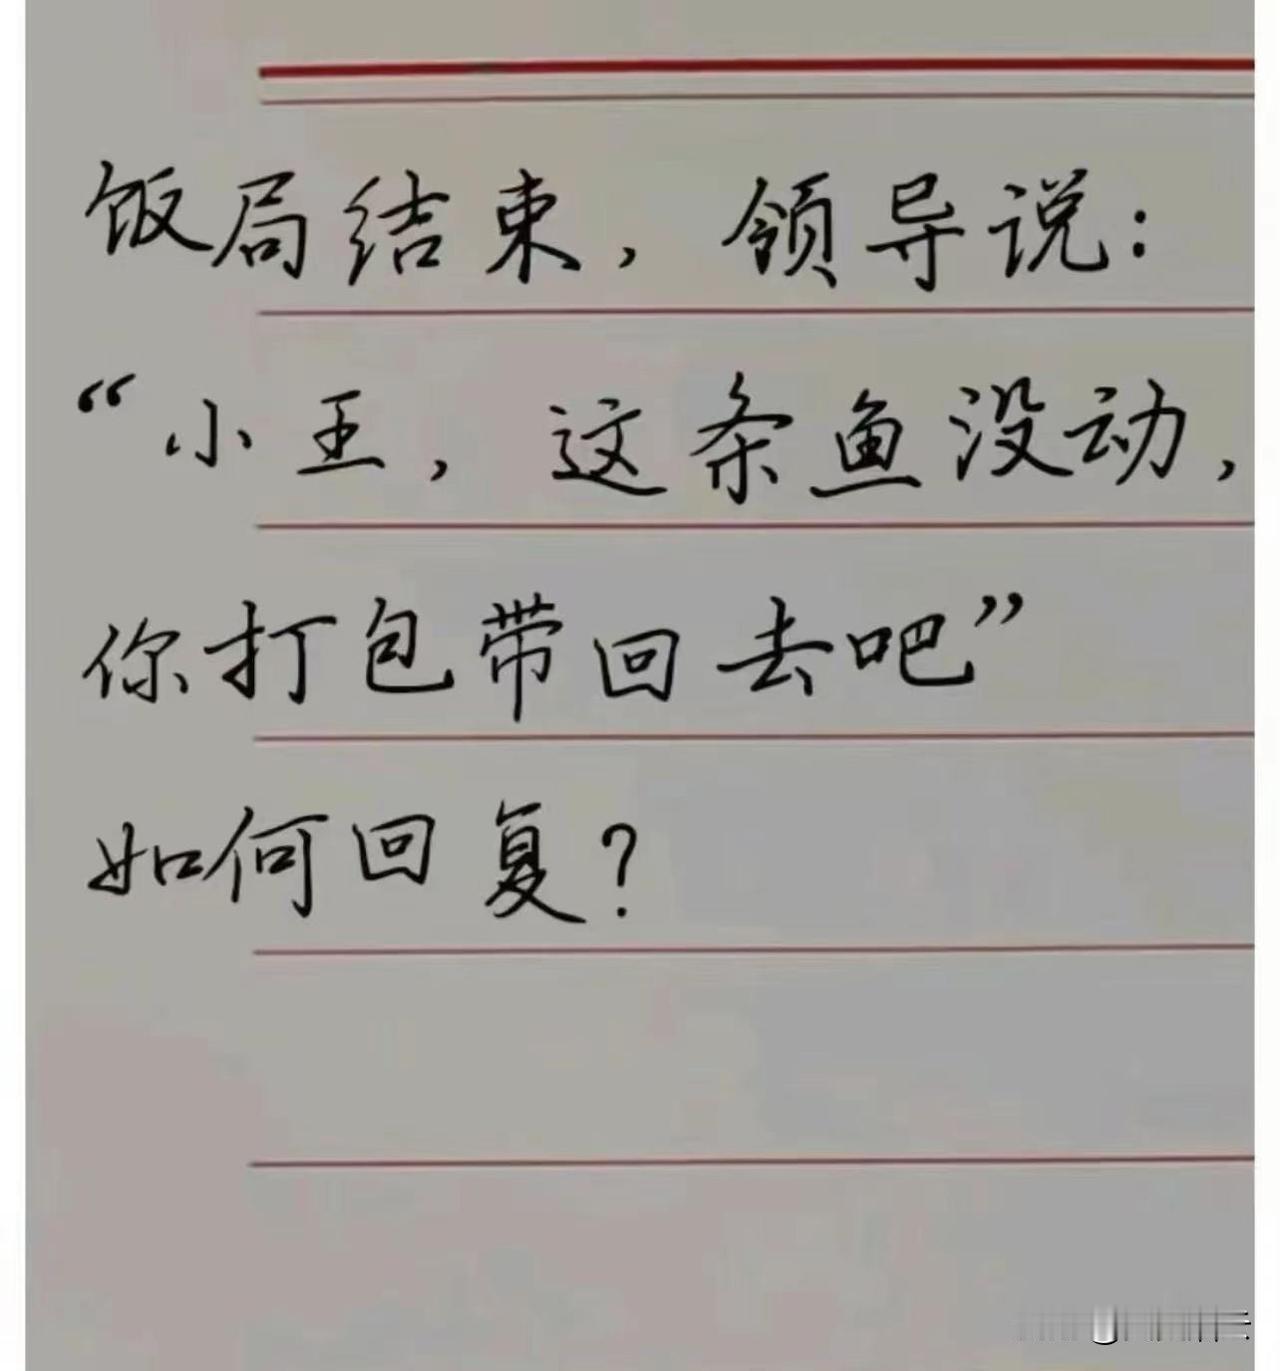 饭局结束，领导说：
“小王，这条鱼没动，
你打包带回去吧”
如何回复？